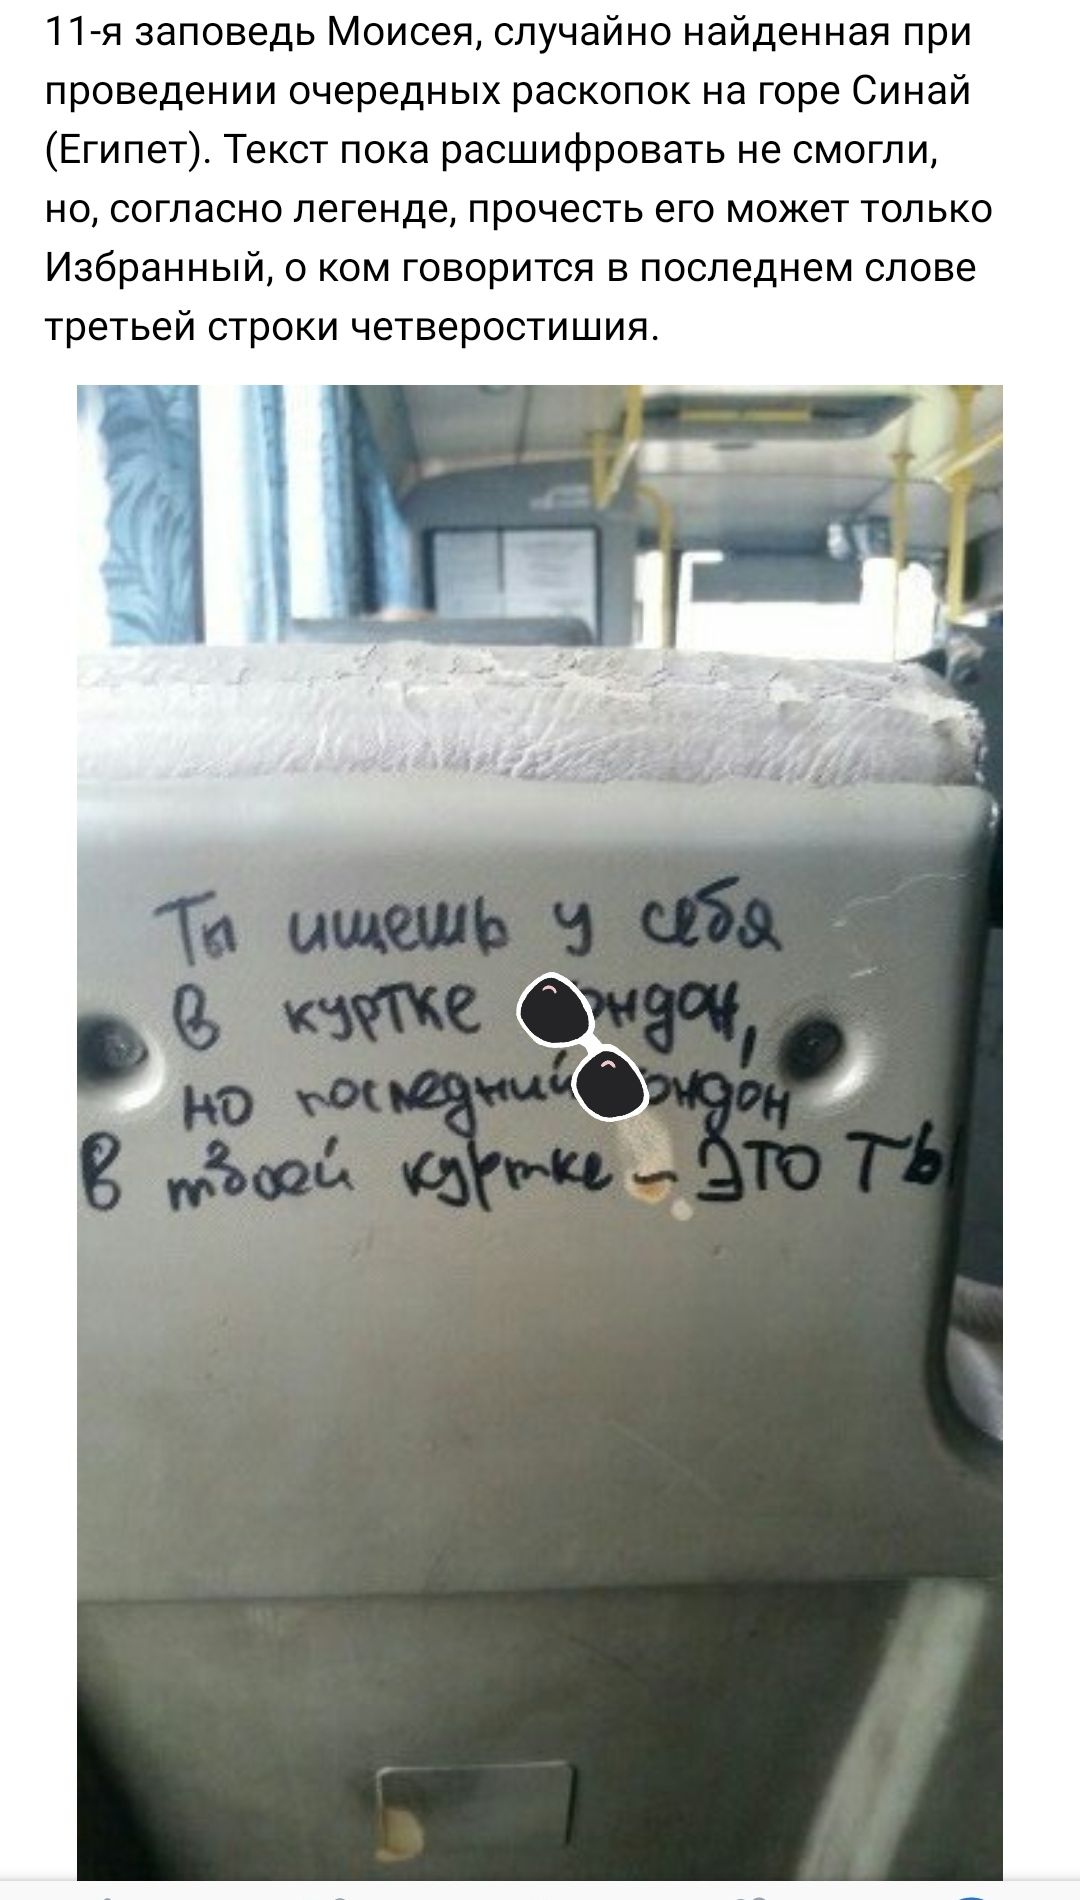 11-я заповедь Моисея, случайно найденная при
проведении очередных раскопок на горе Синай
(Египет). Текст пока расшифровать не смогли,
но, согласно легенде, прочесть его может только
Избранный, о ком говорится в последнем слове
третьей строки четверостишия.
Ты ищешь у себя
в куртке ондон,
но последний ондон
в твоей куртке - это ты